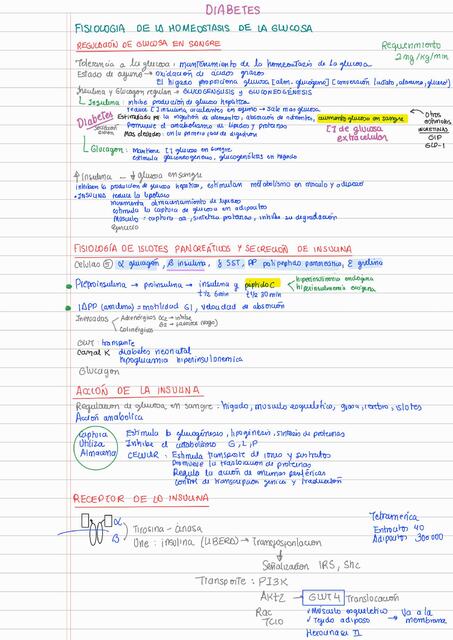 DIABETES
FISIOLOGIA DE LA HOMEOSTASIS DE LA GLUCOSA
REGULACIÓN DE GLUCOSA EN SANGRE
Requerimiento
2mg/kg/min
Tolerancia a la glucosa: mantenimiento de la homeostasis de la glucosa
Estado de ayuno → oxidación de ácidos grasos
El hígado proporciona glucosa
Insulina y Glucagon regulan → GLUCOGENOLISIS Y GLUCONEOGÉNESIS
Insulina: inhibe producción de glucosa hepática
Diabetes
aumento glucosa en sangre
Otros
estímulos
INCRETINAS
GIP
GLP-1
Promueve el metabolismo de lípidos y proteínas
[] de glucosa
extracelular
Glucagon: Mantiene [] glucosa en sangre
Insulina → ↓ glucosa en sangre
Inhiben la producción de glucosa hepática, estimulan metabolismo en músculo y adiposo
• INSULINA reduce la lipólisis
almacenamiento de lípidos
estimula la captura de glucosa en adipocitos
Músculo: captura aa, sintetiza proteínas, inhibe su degradación
Ejercicio
FISIOLOGÍA DE ISLOTES PANCREÁTICOS Y SECRECIÓN DE INSULINA
Células 5 α glucagón, β insulina, δ SST, PP polipéptido pancreático, ε grelina
Preproinsulina → proinsulina → insulina y péptido C
t½ 6min t½ 30 min
hiperinsulinemia endógena
hiperinsulinemia exógena
IAPP (amilina) = motilidad GI, velocidad de absorción
Inervados
Adrenérgicos α2 → inhibe
Colinérgicos
GLUT: transporte
Canal K diabetes neonatal
hipoglucemia hiperinsulinémica
Glucagon
ACCIÓN DE LA INSULINA
Regulación de glucosa en sangre: hígado, músculo esquelético, grasa, cerebro, islotes
Acción anabólica
Captura
Utiliza
Almacena
Estimula la glucogénesis, lipogénesis, síntesis de proteínas
Inhibe el catabolismo G, L, P
CELULAR: Estimula transporte de iones y sustratos
Promueve la traslocación de proteínas
Regula la acción de enzimas
Control de transcripción génica y traducción
RECEPTOR DE LA INSULINA
α
β
Tirosina-cinasa
Une: insulina (LIBERA) → Transfosforilación
Señalización IRS, Shc
Tetramérica
Eritrocitos 40
Adipocitos 300 000
Transporte: PI3K
AKT2 → GLUT 4 Translocación
Rac
TC10
Músculo esquelético
Tejido adiposo
Va a la
membrana